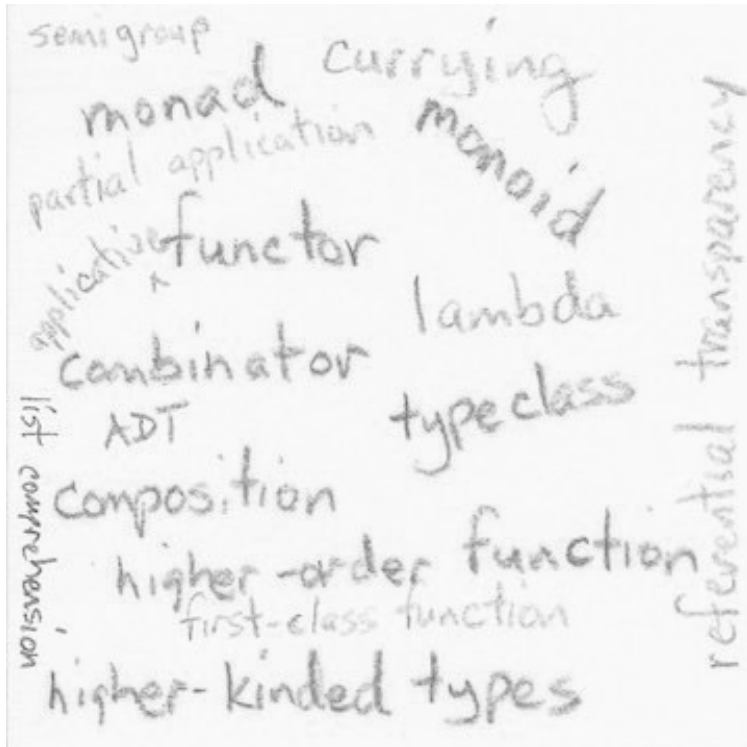 semigroup
currying
monad
monoid
partial application
applicative ^ functor
lambda
combinator
typeclass
ADT
composition
higher-order function
first-class function
higher-kinded types
list comprehension
referential transparency